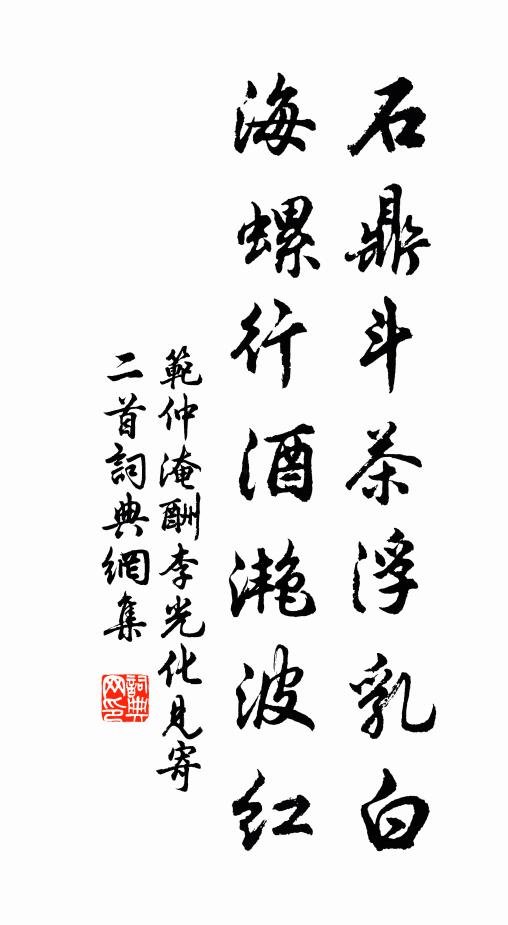 石鼎斗茶浮乳白
海螺行酒滟波红
範仲淹酬李光化見寄
二首詞典網集
詞典
网印